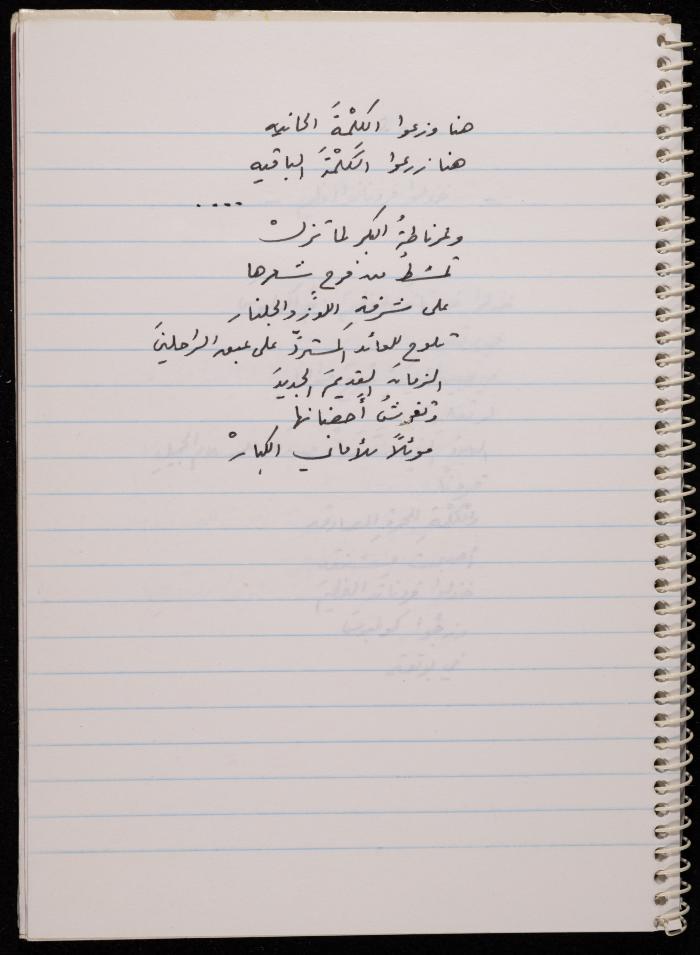 هنا وزعوا الكلْمةَ الحانيه
هنا زرعوا الكَلْمةَ الباقيه
....
وغرناطةُ البكر لما تزلْ
تمشطُ من فرح شعرها
على شرفةِ اللوز والجلنار
تلوح للعائد المستردِّ على عبق الراحلينَ
الزمانَ القديمَ الجديدَ
وتفرشُ أَحضانها
موئلًا للأماني الكبارْ